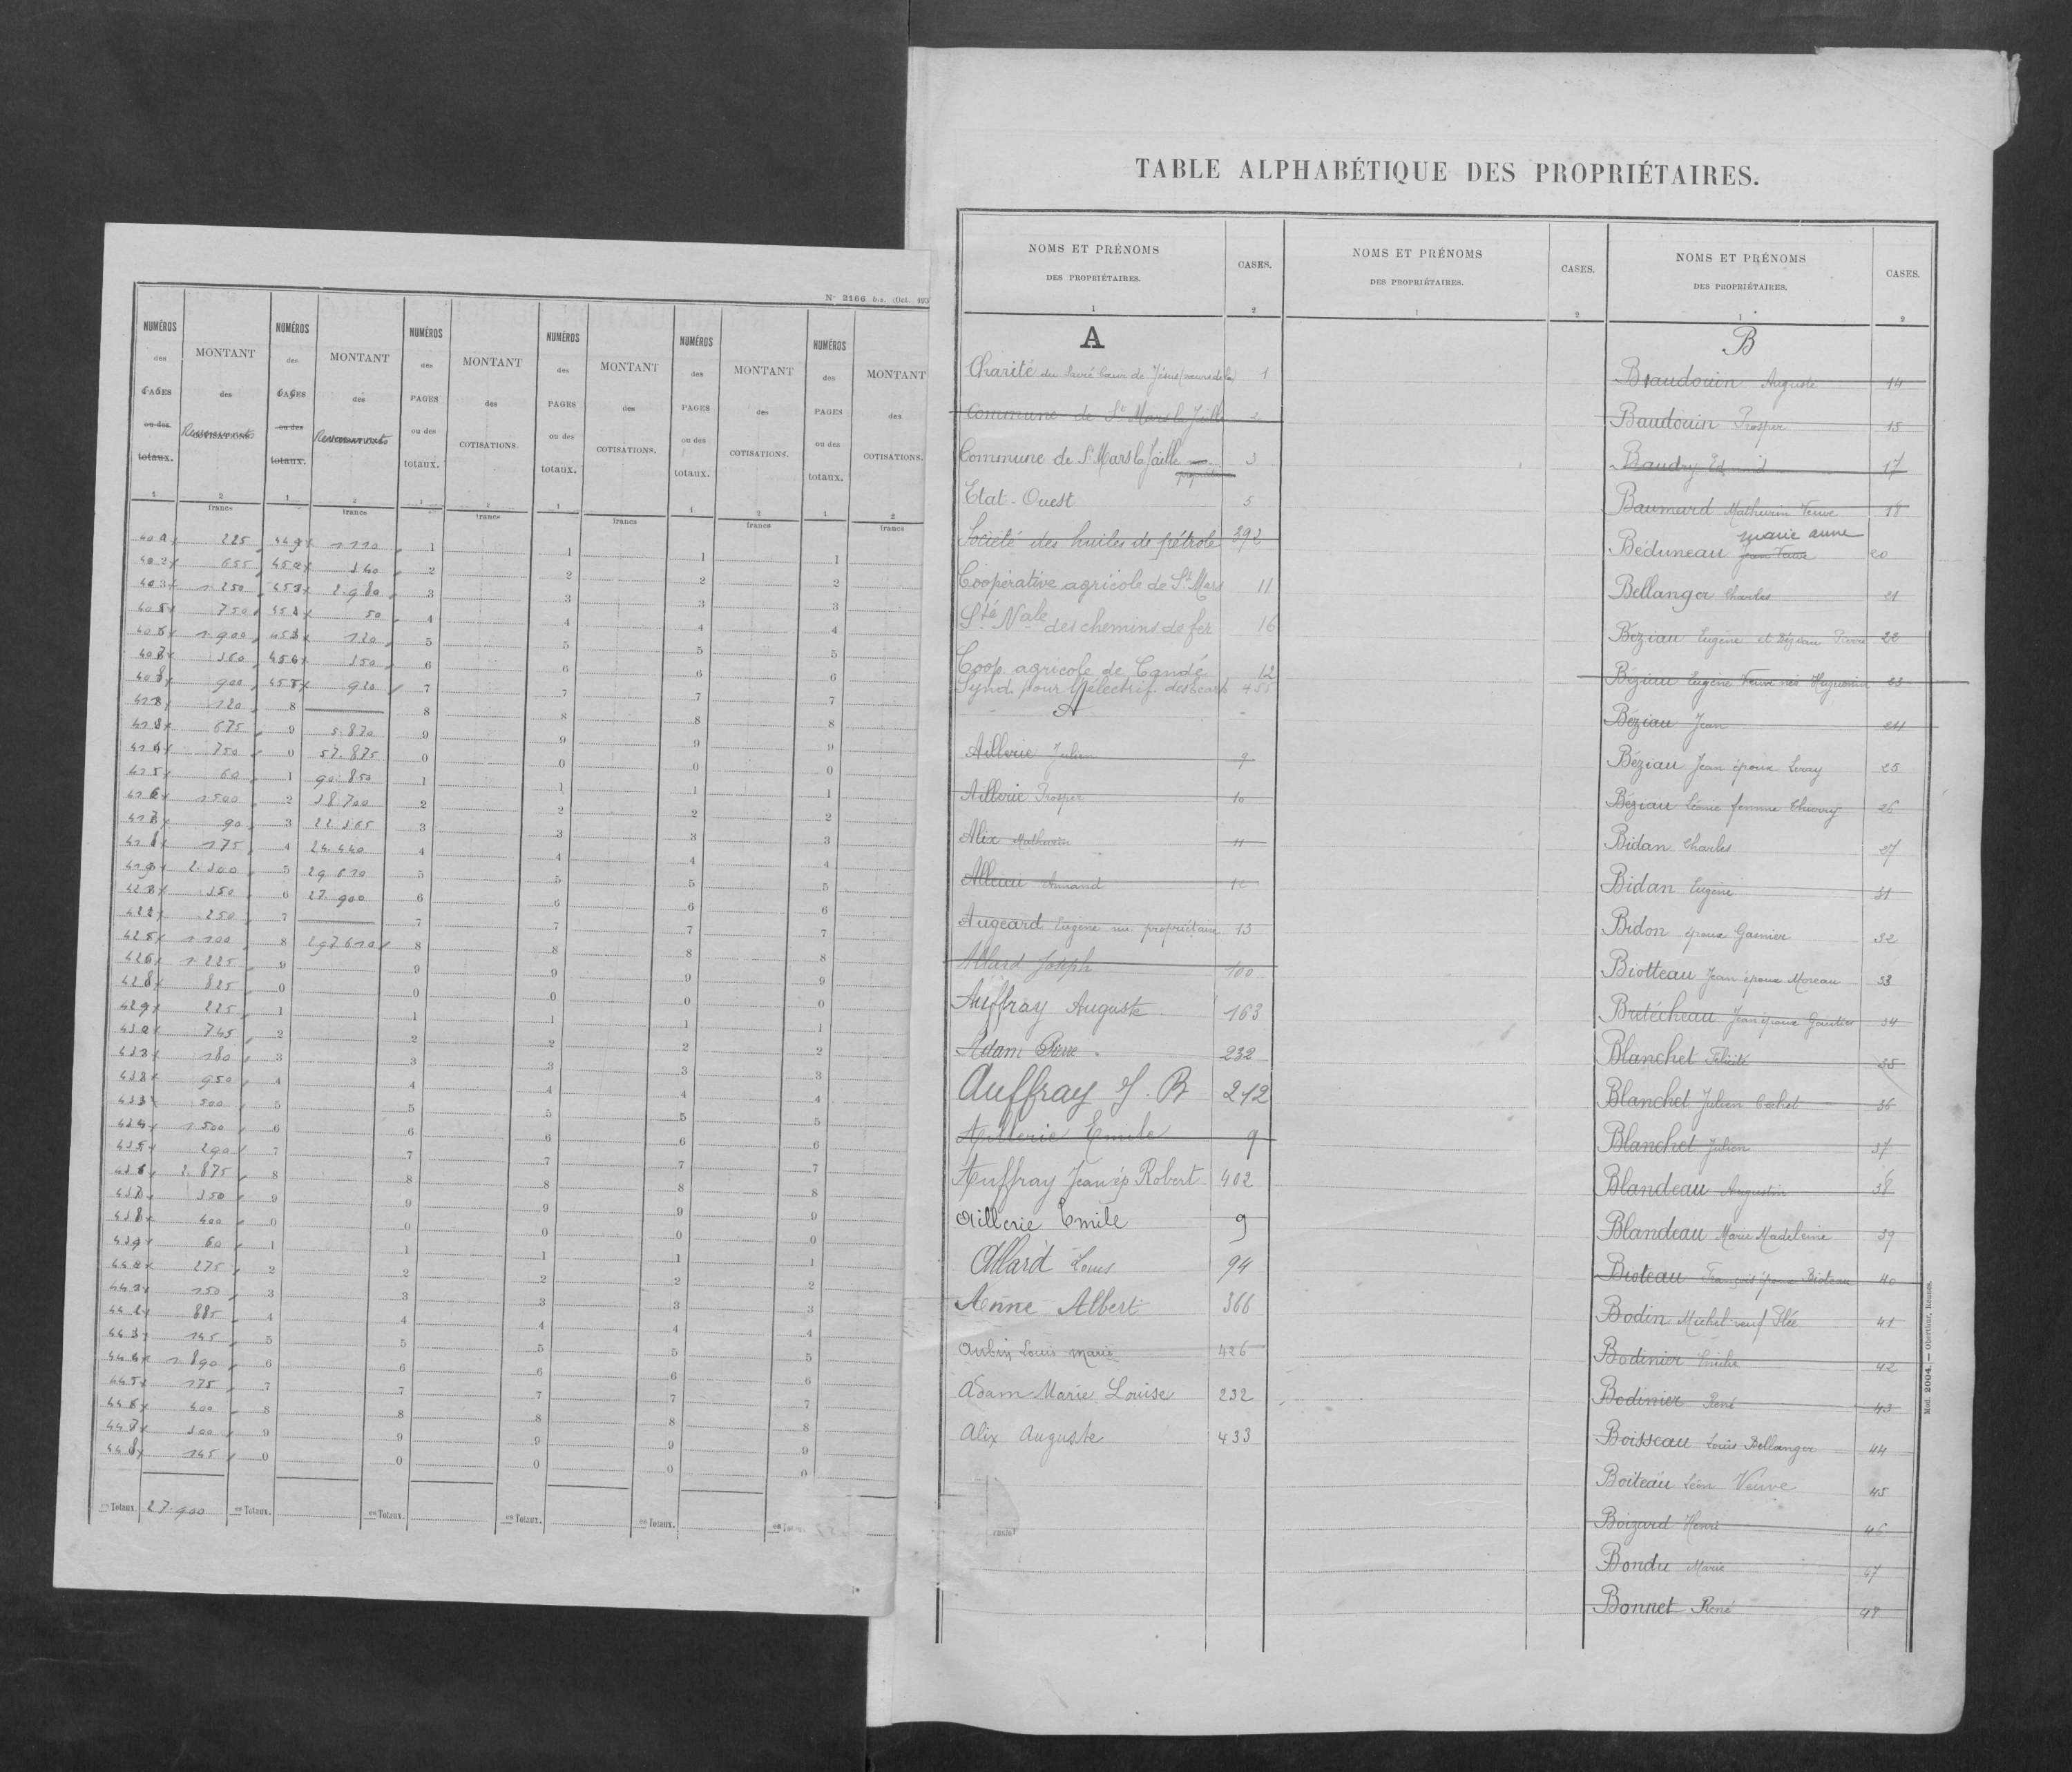 N° 2166 Dis. (Oct. 193
NUMÉROS des PAGES ou des totaux. MONTANT des Revenus COTISATIONS. NUMÉROS des PAGES ou des totaux. MONTANT des Revenus NUMÉROS des PAGES ou des totaux. MONTANT des COTISATIONS. NUMÉROS des PAGES ou des totaux. MONTANT des COTISATIONS. NUMÉROS des PAGES ou des totaux. MONTANT des COTISATIONS. NUMÉROS des PAGES ou des totaux. MONTANT des COTISATIONS.
1 2 1 2 1 2 1 2 1 2 1 2
francs francs francs francs francs francs
225 449 1110 1 1 1 1
402 655 340 2 2 2 2
403 1.250 2.980 3 3 3 3
750 50 4 4 4 4
1.900 120 5 5 5 5
360 350 6 6 6 6
900 920 7 7 7 7
120 8 8 8 8 8
675 9 5.870 9 9 9 9
750 0 57.875 0 0 0 0
415 60 1 90.850 1 1 1 1
416 1500 2 38700 2 2 2 2
90 3 22.365 3 3 3 3
418 175 4 24.440 4 4 4 4
419 2.300 5 29 610 5 5 5 5
350 6 27.900 6 6 6 6
250 7 7 7 7 7
425 1100 8 297610 8 8 8 8
426 1.225 9 9 9 9 9
428 825 0 0 0 0 0
429 225 1 1 1 1 1
430 745 2 2 2 2 2
180 3 3 3 3 3
950 4 4 4 4 4
433 500 5 5 5 5 5
434 1500 6 6 6 6 6
435 290 7 7 7 7 7
436 2.875 8 8 8 8 8
437 350 9 9 9 9 9
438 400 0 0 0 0 0
439 60 1 1 1 1 1
440 275 2 2 2 2 2
441 150 3 3 3 3 3
442 885 4 4 4 4 4
443 145 5 5 5 5 5
444 1890 6 6 6 6 6
445 175 7 7 7 7 7
446 400 8 8 8 8 8
447 300 9 9 9 9 9
448 145 0 0 0 0 0
Totaux. 27.900 Totaux. Totaux. Totaux. Totaux.
TABLE ALPHABÉTIQUE DES PROPRIÉTAIRES.
NOMS ET PRÉNOMS DES PROPRIÉTAIRES. CASES. NOMS ET PRÉNOMS DES PROPRIÉTAIRES. CASES. NOMS ET PRÉNOMS DES PROPRIÉTAIRES. CASES.
1 2 1 2 1 2
A
Charité du Sacré Cœur de Jésus (sœurs de la) 1
Commune de St Mars la Jaille 2
Commune de St Mars la Jaille 3
propriétaire
Etat-Ouest 5
Société des huiles de pétrole 392
Coopérative agricole de St Mars 11
Sté Nale des chemins de fer 16
Coop. agricole de Candé 12
Synd. pour l'électrif. des écarts 455
A
Aillerie Julien 9
Aillerie Prosper 10
Alix Mathurin 11
Armand 12
Augeard Eugène nu propriétaire 13
Allard Joseph 100
Auffray Auguste 163
Adam Pierre 232
Auffray J. B 212
Aillerie Emile 9
Auffray Jean ép Robert 402
Aillerie Emile 9
Allard Louis 94
Aenne Albert 366
Aubin Louis marie 426
Adam Marie Louise 232
Alix Auguste 433
B
Beaudouin Auguste 14
Baudouin Prosper 15
Baudry Edmond 17
Baumard Mathurin Veuve 18
marie anne
Béduneau Jean Veuve 20
Bellanger Charles 21
Béziau Eugène et Béziau Pierre 22
Béziau Eugène Veuve née Huguenin 23
Béziau Jean 24
Béziau Jean époux Leray 25
Béziau Léonie femme Thierry 26
Bidan Charles 27
Bidan Eugène 31
Bidon époux Garnier 32
Biotteau Jean époux Moreau 33
Bretécheau Jean époux Gautier 34
Blanchet Félicité 35
Blanchet Julien Cochet 36
Blanchet Julien 37
Blandeau Augustin 38
Blandeau Marie Madeleine 39
Bioteau François époux Bioteau 40
Bodin Michel veuf Plée 41
Bodinier Emile 42
Bodinier René 43
Boisseau Louis Bellanger 44
Boiteau Léon Veuve 45
Boizard Henri 46
Bondu Marie 47
Bonnet René 48
Mod. 2004. — Oberthur, Rennes.